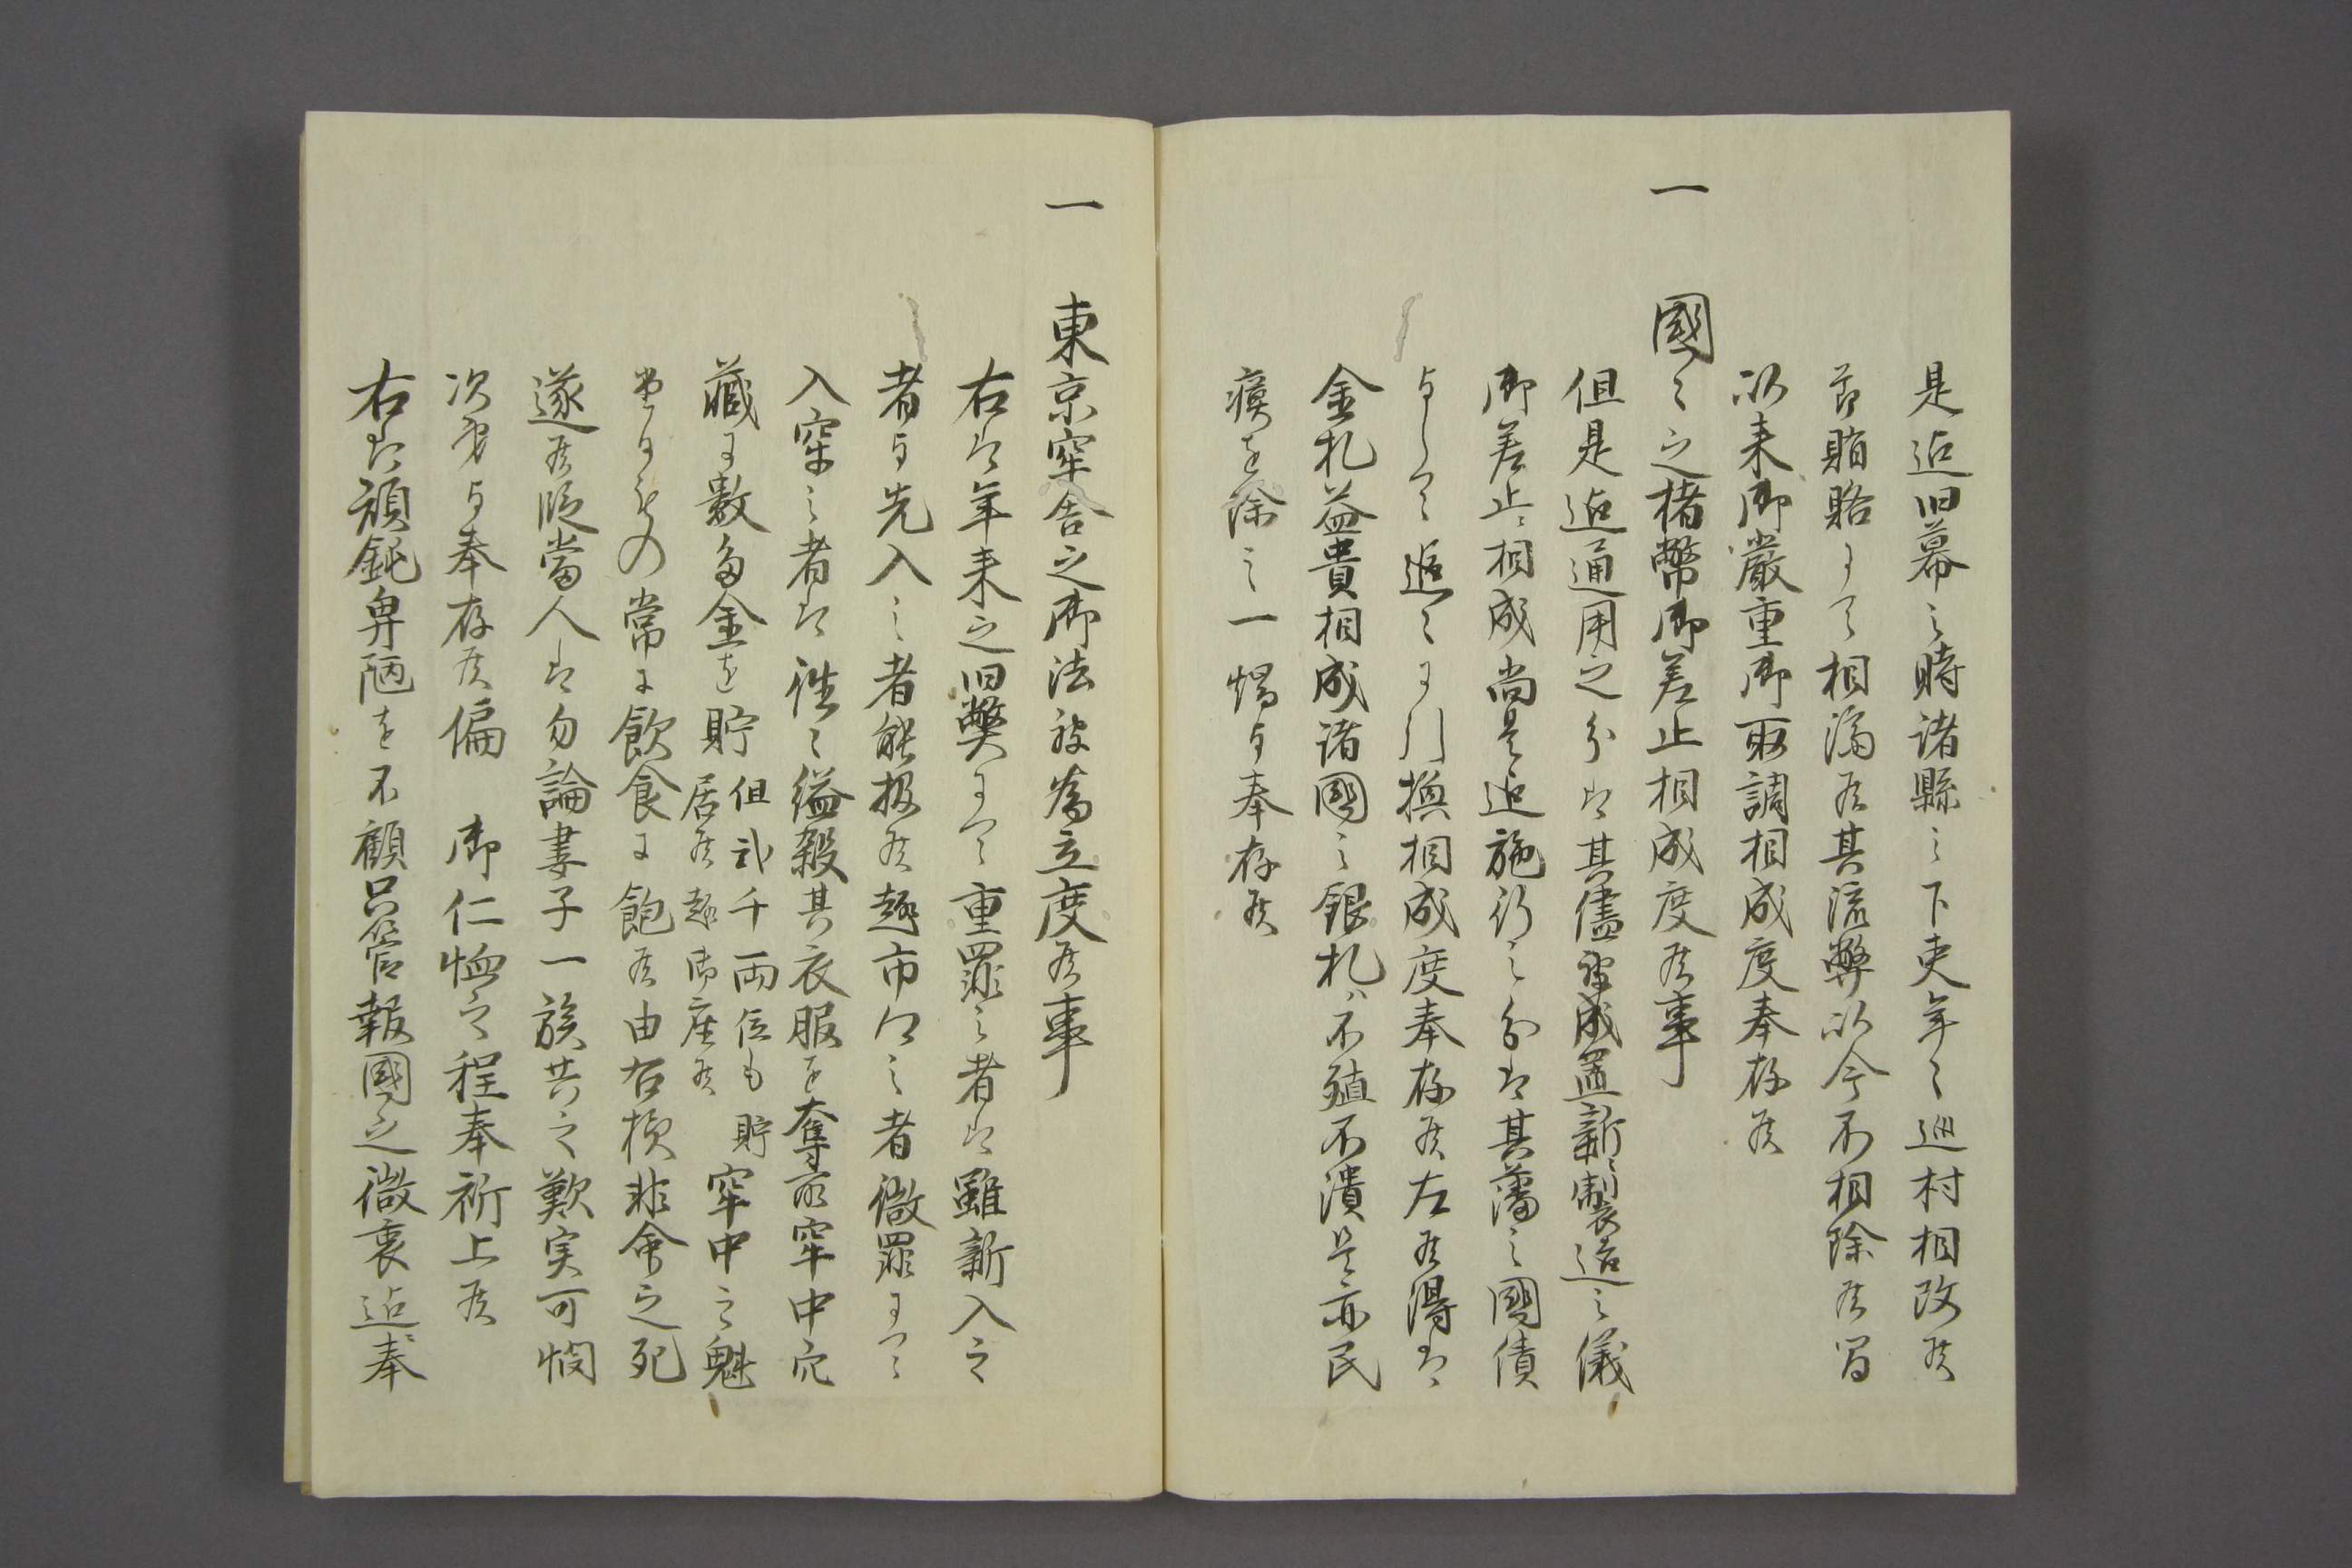 是迠旧幕之時諸縣之下吏年々巡村相改候
節賄賂ニて相濟候其流弊以今不相除候間
以来御嚴重御取調相成度奉存候
一 國々之楮幣御差止相成度候事
但是迠通用之分ハ其儘被成置新製造之儀
御差止相成尚是迠施行之分ハ其藩之國債
与して追々ニ引換相成度奉存候左候得ハ
金札益貴相成諸國之銀札ハ不殖不潰是亦民
瘼を除之一端与奉存候
一 東京窂舎之御法被為立度候事
右ハ年来之旧弊ニて重罪之者ハ雖新入之
者与先入之者能扱候趣市口之者微罪ニて
入窂之者ハ往々縊殺其衣服を奪取窂中穴
藏ニ數多金を貯 但弐千両位も貯居候趣御座候 窂中之魁
たるもの常ニ飲食ニ飽候由右横非命之死
遂候段當人ハ勿論妻子一族共之歎実可憫
次第与奉存候偏 御仁恤之程奉祈上候
右ハ頑鈍卑陋を不顧呂管報國之微衷迠奉